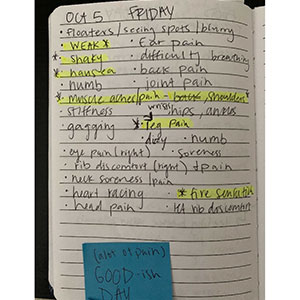 OCT 5 FRIDAY
• floaters/seeing spots/blurry
• WEAK * • Ear pain
* • Shaky • difficulty breathing
* • nausea • back pain
• numb • joint pain
* • muscle aches/pain - back shoulders *
• stiffness wrists, hips, ankles
• gagging * • leg pain
• dizzy • numb
• eye pain (right) • soreness
• rib discomfort (right) + pain
• neck soreness/pain
• heart racing * • fire sensation
• head pain • rib discomfort
(alot of pain)
GOOD-ish
DAY